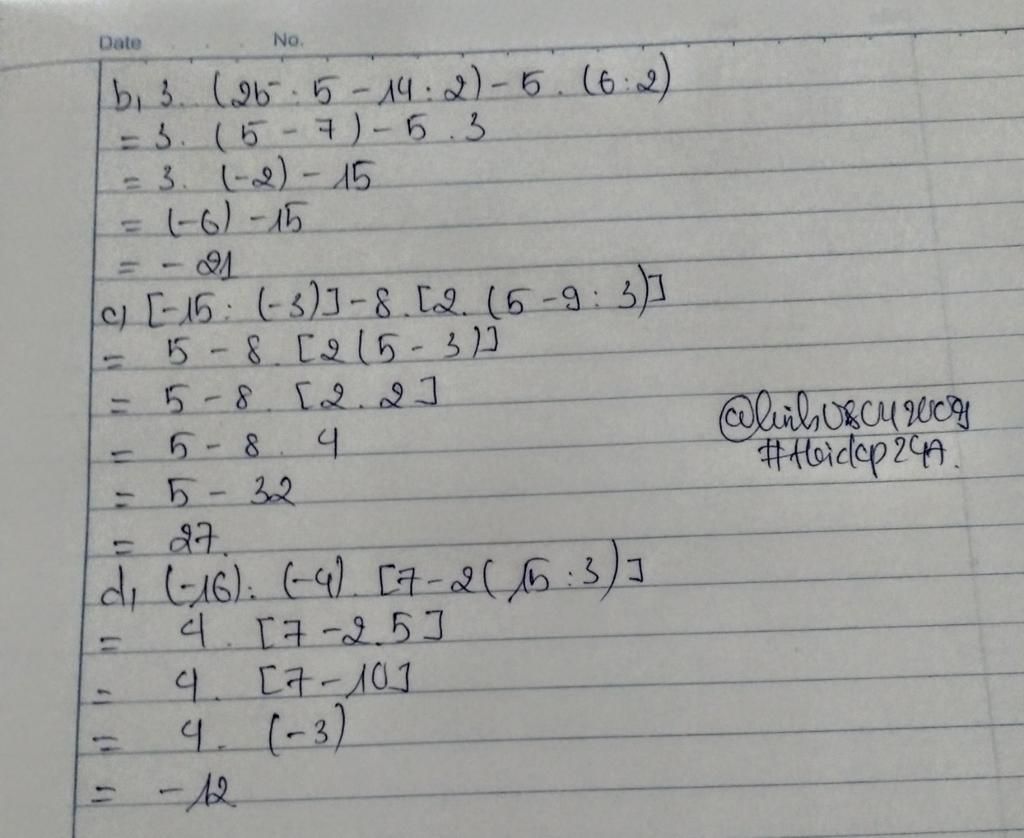 Date No.
b, 3. (25 : 5 - 14 : 2) - 5 . (6 : 2)
= 3. (5 - 7) - 5 . 3
= 3. (-2) - 15
= (-6) - 15
= - 21
c) [-15 : (-3)] - 8 . [2. (5 - 9 : 3)]
= 5 - 8. [2(5 - 3)]
= 5 - 8. [2.2]
= 5 - 8. 4
= 5 - 32
= 27.
d, (-16) : (-4). [7 - 2(15 : 3)]
= 4. [7 - 2.5]
= 4. [7 - 10]
= 4. (-3)
= -12